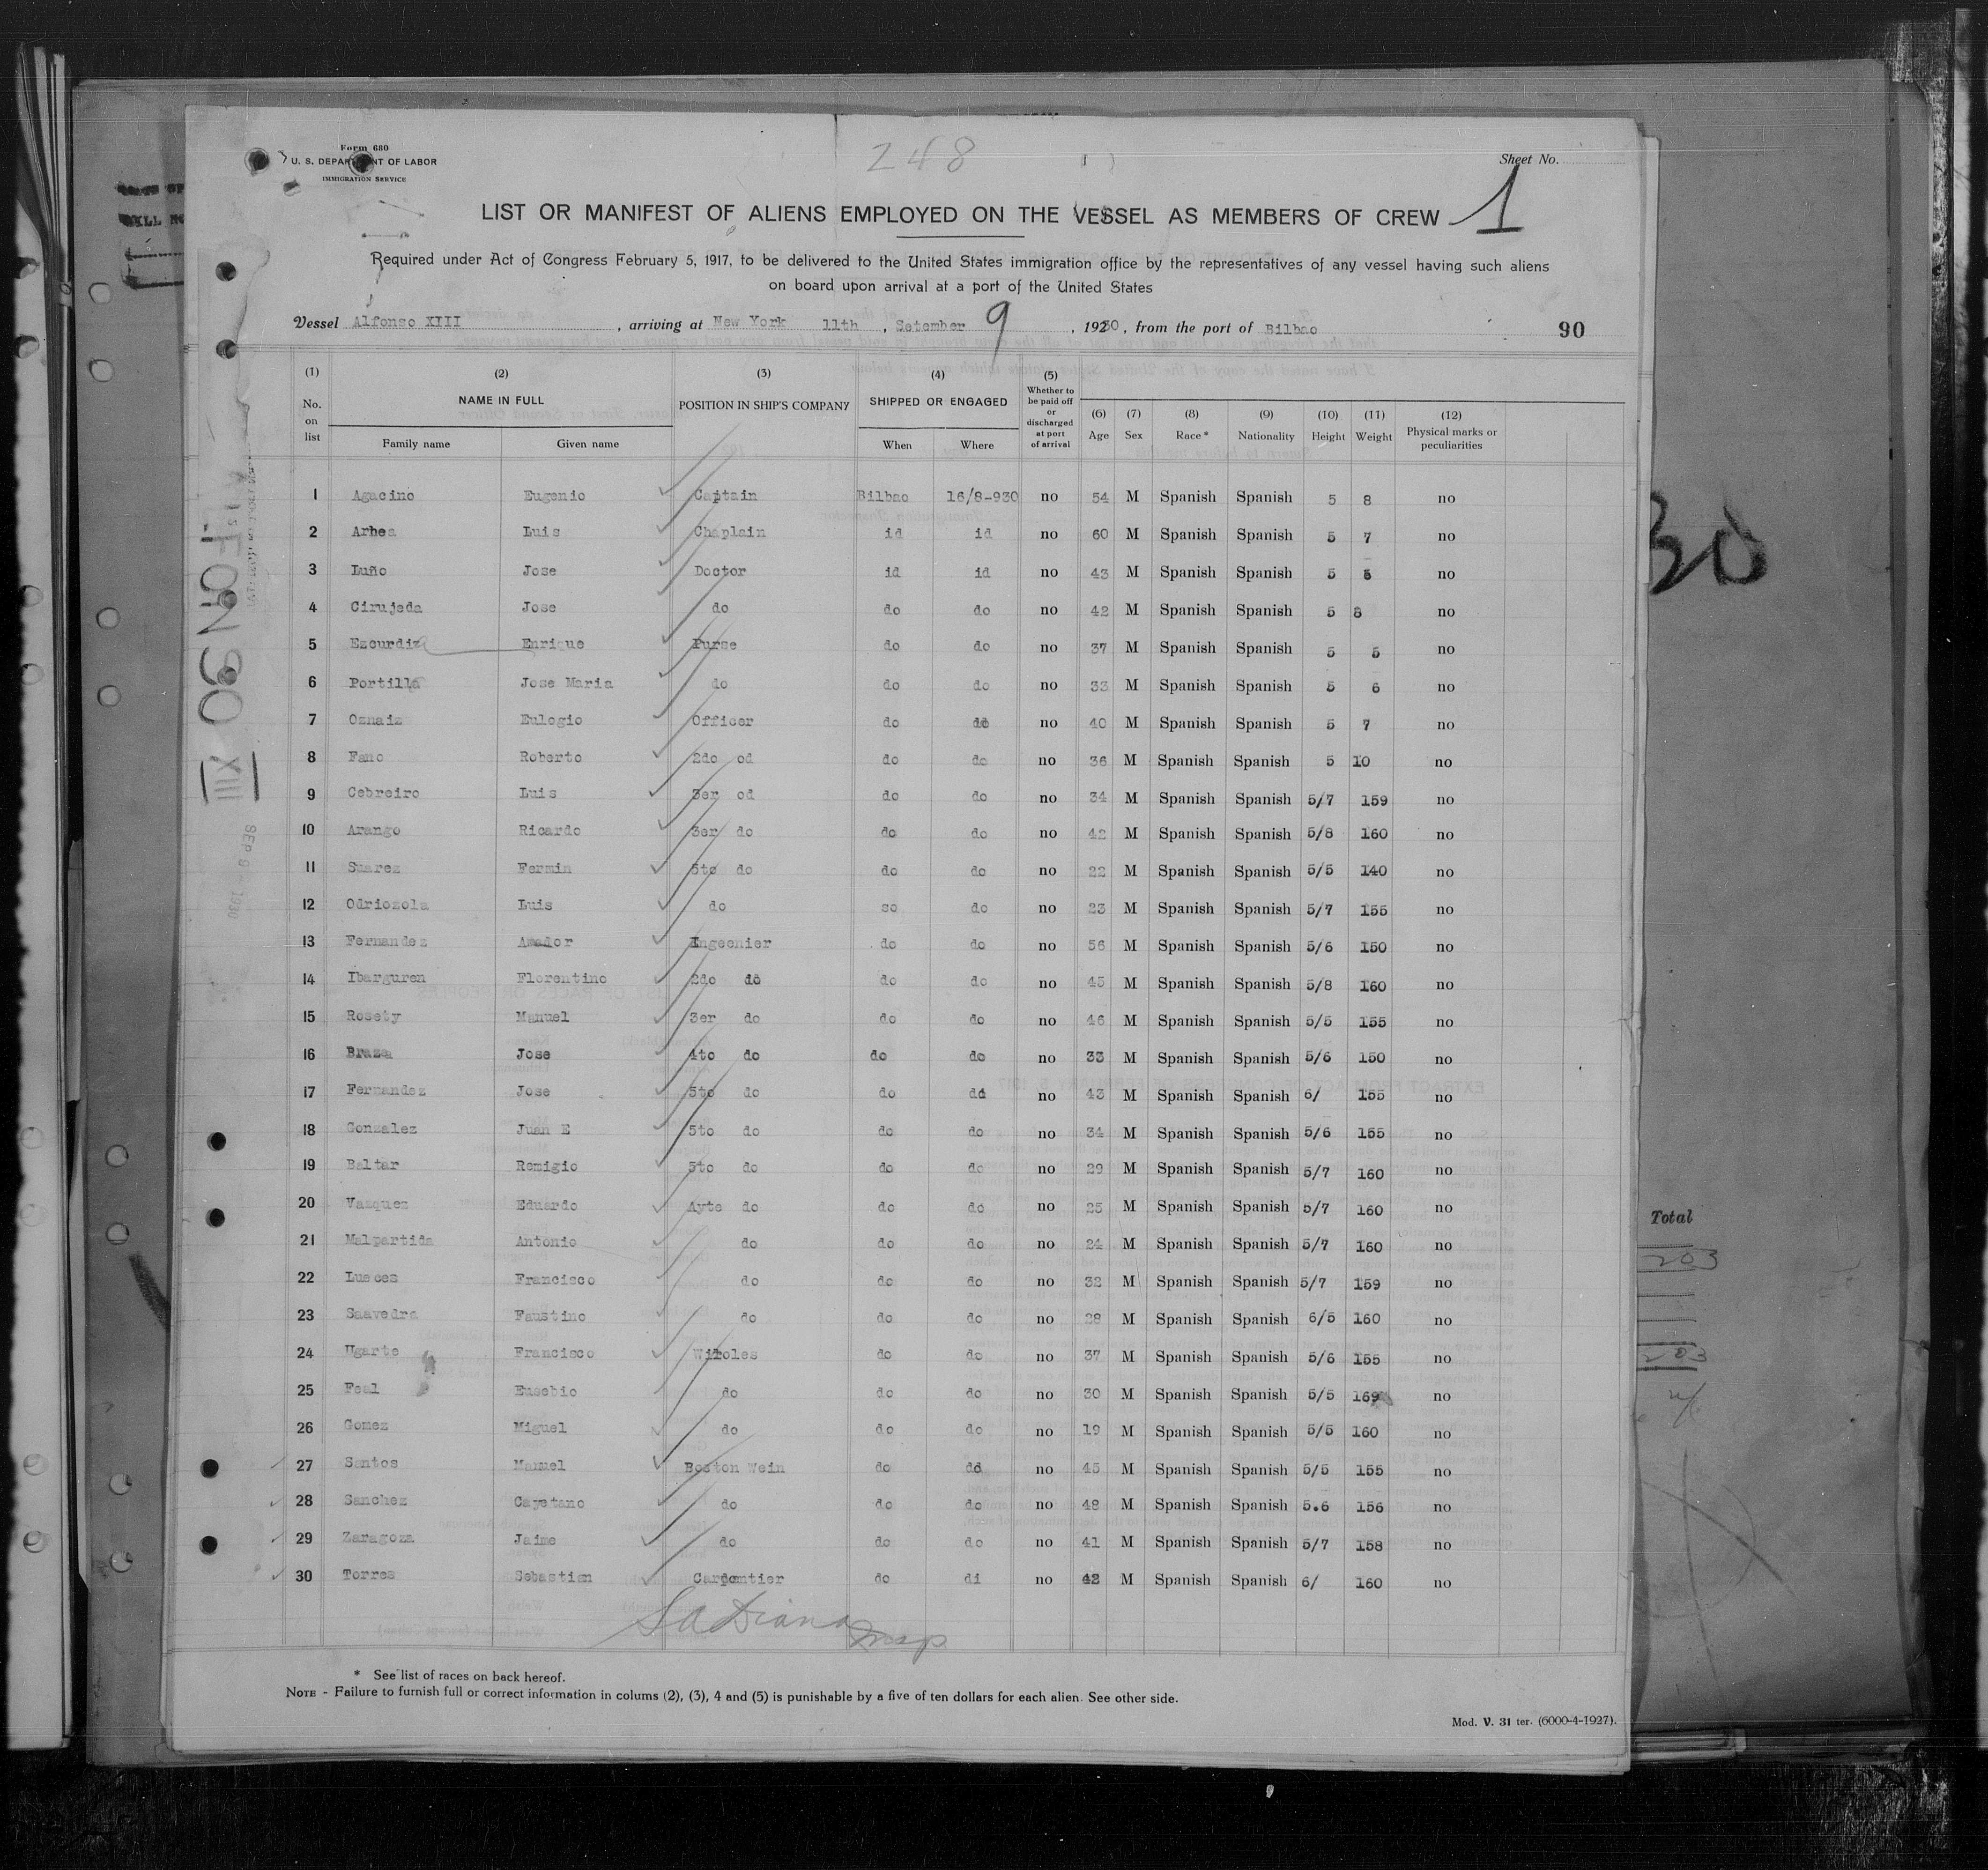 Form 680
U. S. DEPARTMENT OF LABOR
IMMIGRATION SERVICE
248
Sheet No.
1
LIST OR MANIFEST OF ALIENS EMPLOYED ON THE VESSEL AS MEMBERS OF CREW
Required under Act of Congress February 5, 1917, to be delivered to the United States immigration office by the representatives of any vessel having such aliens
on board upon arrival at a port of the United States
Vessel Alfonso XIII, arriving at New York 11th, Setember 9, 1930, from the port of Bilbao 90
(1) No. on list (2) NAME IN FULL Family name Given name (3) POSITION IN SHIP'S COMPANY (4) SHIPPED OR ENGAGED When Where (5) Whether to be paid off or discharged at port of arrival (6) Age (7) Sex (8) Race* (9) Nationality (10) Height (11) Weight (12) Physical marks or peculiarities
1 Agacino Eugenio Captain Bilbao 16/8-930 no 54 M Spanish Spanish 5 8 no
2 Arhea Luis Chaplain id id no 60 M Spanish Spanish 5 7 no
3 Luño Jose Doctor id id no 43 M Spanish Spanish 5 5 no
4 Cirujeda Jose do do do no 42 M Spanish Spanish 5 8 no
5 Ezcurdia Enrique Purse do do no 37 M Spanish Spanish 5 5 no
6 Portilla Jose Maria do do do no 33 M Spanish Spanish 5 6 no
7 Oznaiz Eulogio Officer do do no 40 M Spanish Spanish 5 7 no
8 Fano Roberto 2do od do do no 36 M Spanish Spanish 5 10 no
9 Cebreiro Luis 3er od do do no 34 M Spanish Spanish 5/7 159 no
10 Arango Ricardo 3er do do do no 42 M Spanish Spanish 5/8 160 no
11 Suarez Fermin 5to do do do no 22 M Spanish Spanish 5/5 140 no
12 Odriozola Luis do so do no 23 M Spanish Spanish 5/7 155 no
13 Fernandez Amador Ingeenier do do no 56 M Spanish Spanish 5/6 150 no
14 Ibarguren Florentino 2do do do do no 45 M Spanish Spanish 5/8 160 no
15 Rosety Manuel 3er do do do no 46 M Spanish Spanish 5/5 155 no
16 Braza Jose 4to do do do no 33 M Spanish Spanish 5/6 150 no
17 Fernandez Jose 5to do do dd no 43 M Spanish Spanish 6/ 155 no
18 Gonzalez Juan E 5to do do do no 34 M Spanish Spanish 5/6 155 no
19 Baltar Remigio 5to do do do no 29 M Spanish Spanish 5/7 160 no
20 Vazquez Eduardo Ayte do do do no 25 M Spanish Spanish 5/7 160 no
21 Malpartida Antonio do do do no 24 M Spanish Spanish 5/7 160 no
22 Lueces Francisco do do do no 32 M Spanish Spanish 5/7 159 no
23 Saavedra Faustino do do do no 28 M Spanish Spanish 6/5 160 no
24 Ugarte Francisco Wiroles do do no 37 M Spanish Spanish 5/6 155 no
25 Feal Eusebio do do do no 30 M Spanish Spanish 5/5 169 no
26 Gomez Miguel do do do no 19 M Spanish Spanish 5/5 160 no
27 Santos Manuel Boston Wein do dd no 45 M Spanish Spanish 5/5 155 no
28 Sanchez Cayetano do do do no 48 M Spanish Spanish 5.6 156 no
29 Zaragoza Jaime do do do no 41 M Spanish Spanish 5/7 158 no
30 Torres Sebastian Carpentier do di no 42 M Spanish Spanish 6/ 160 no
* See list of races on back hereof.
NOTE - Failure to furnish full or correct information in colums (2), (3), 4 and (5) is punishable by a five of ten dollars for each alien. See other side.
Mod. V. 31 ter. (6000-4-1927).
XIII
SEP 9 1930
30
Total
203
203